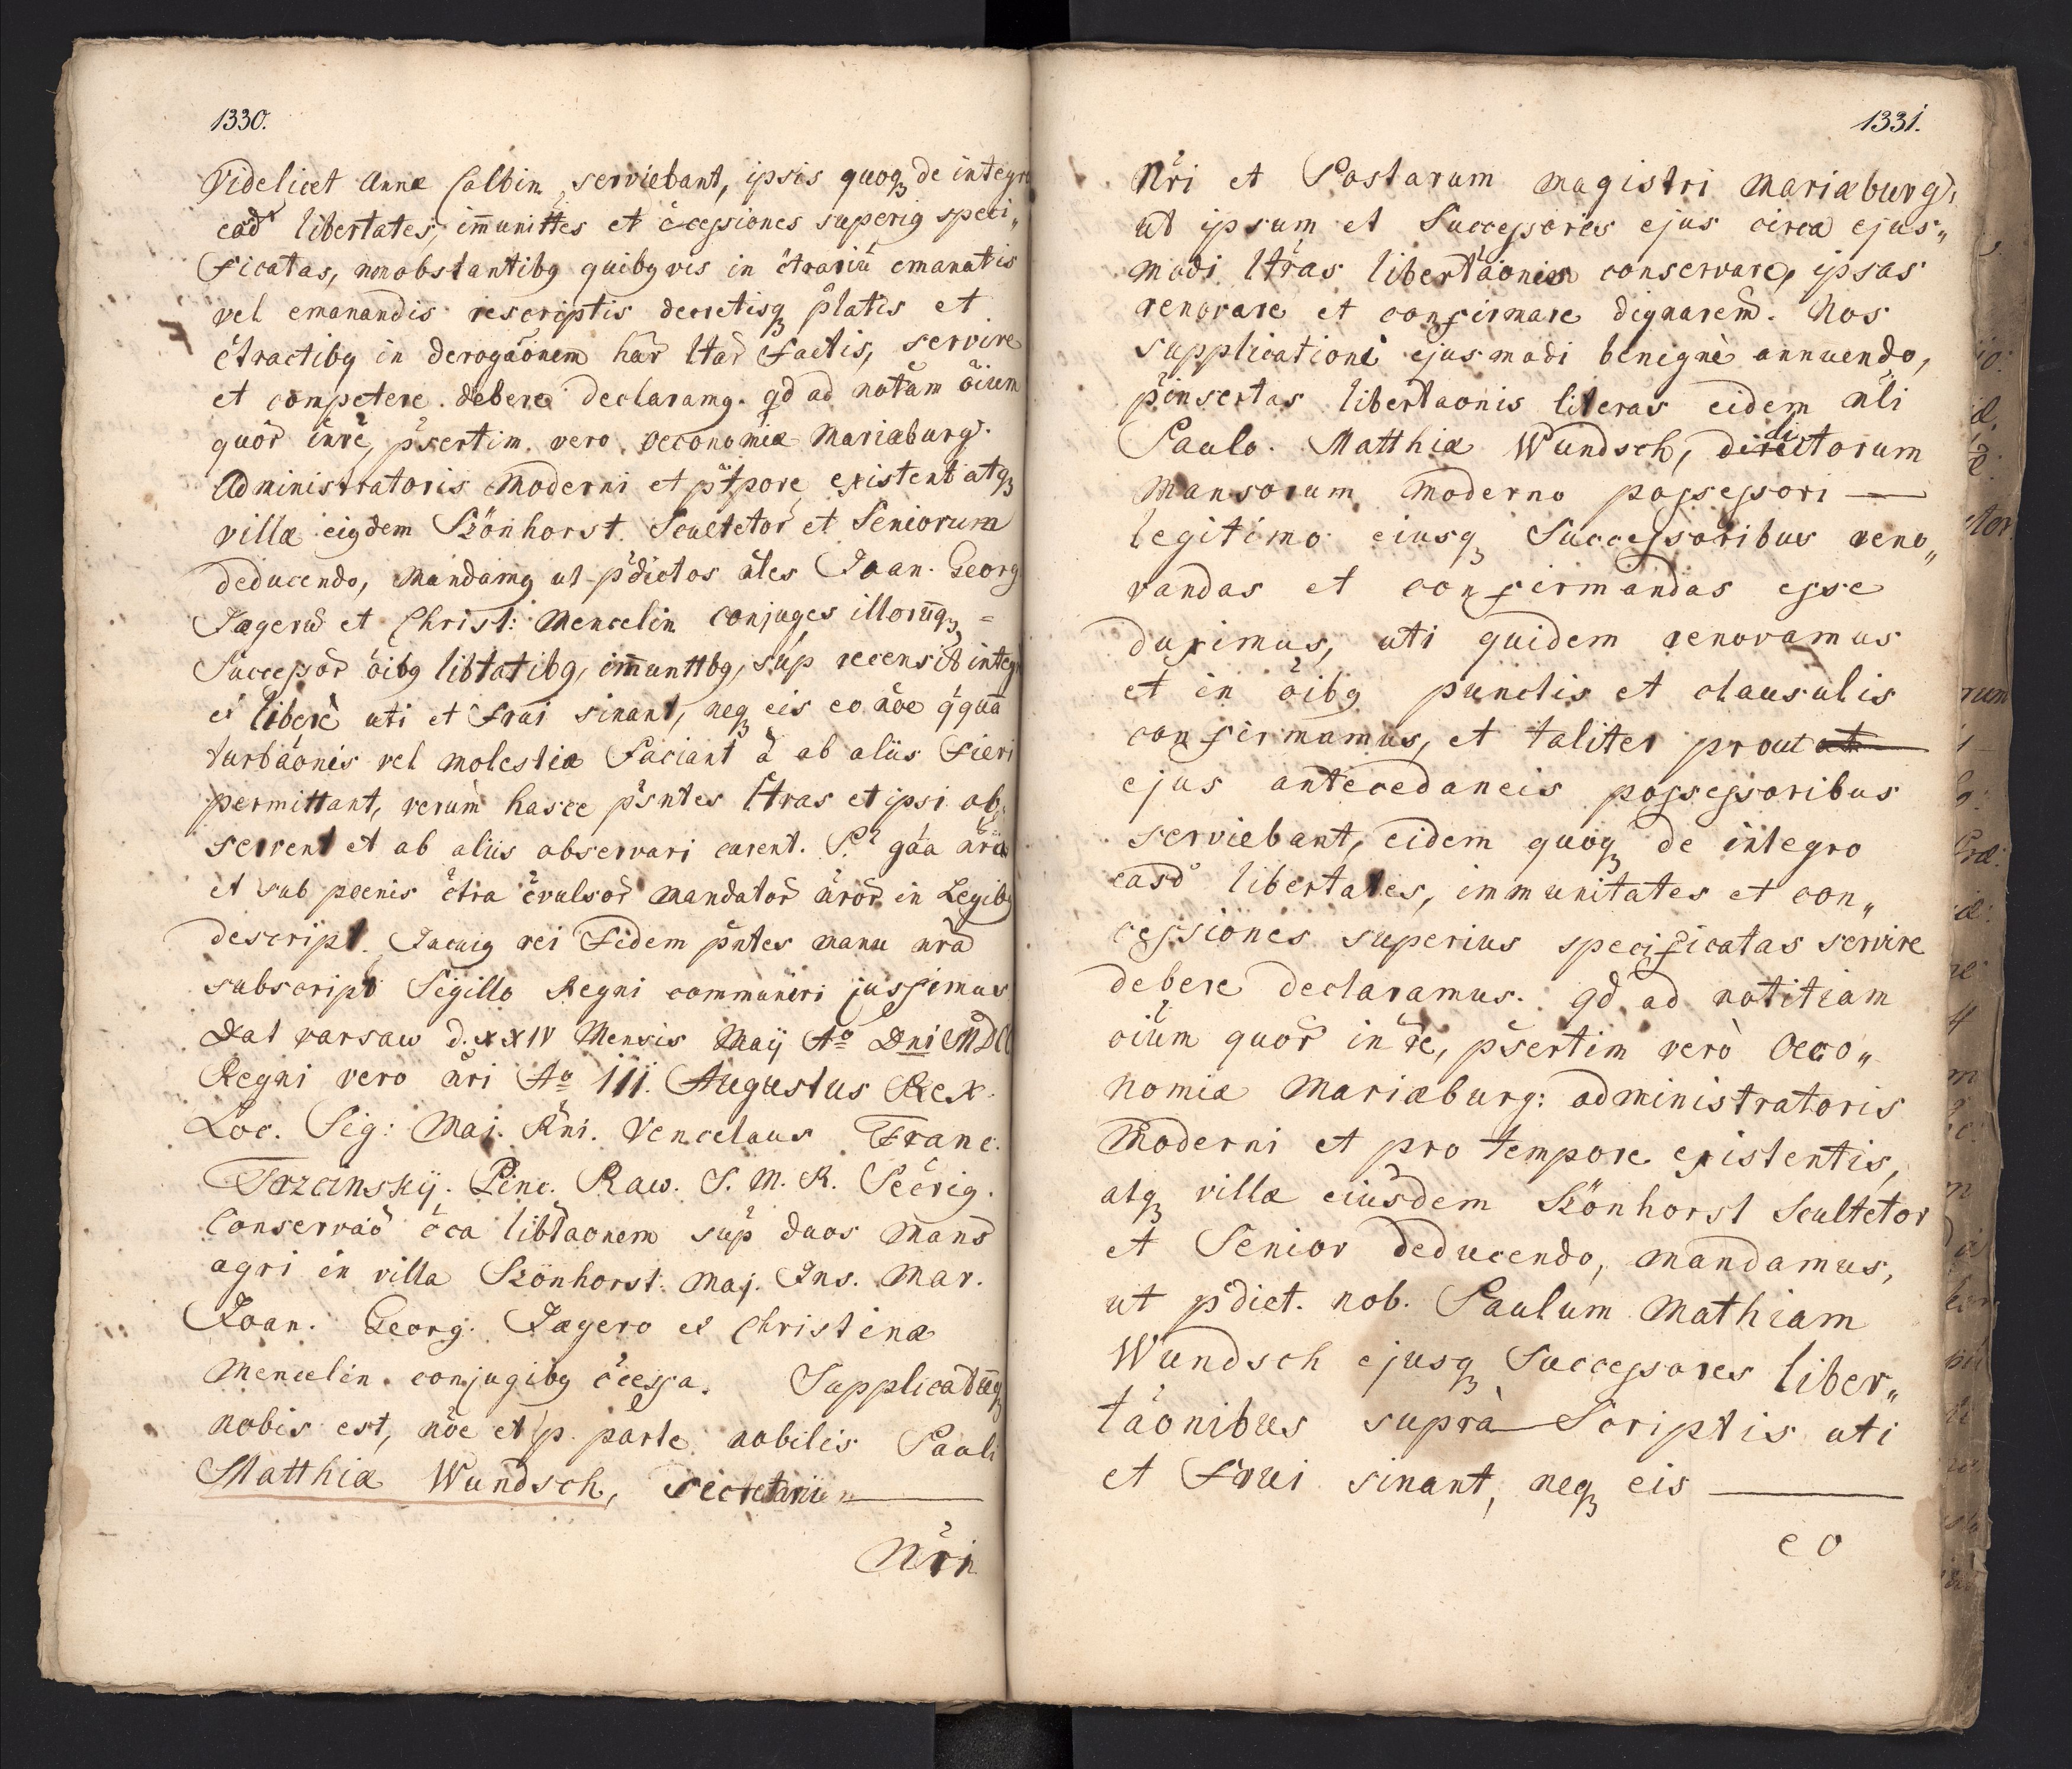 1330.
Videlicet Annæ Calbin serviebant, ipsis quoqꝫ de integro
eãd libertates, im̃unittes et c̃cessiones superiꝯ speci„
ficatas, nonobstantibꝯ quibꝯvis in c̃trariũ emanatis
vel emanandis rescriptis decretisqꝫ p̃latis et
c̃tractibꝯ in derogãonem har̃ ltar̃ factis, servire
et competere debere declaramꝯ. qd ad notam õium
quor̃ inrẽ, p̃sertim vero oeconomiæ Mariæburg.
Administratoris Moderni et p̃tpore existent atqꝫ
villæ eiꝯdem Szönhorst. Scultetor̃ et Seniorum
deducendo, mandamꝯ ut p̃dictos ñles Joan. Georg.
Jægerũ et Christ: Mencelin conjuges illorũqꝫ =
Successor̃ õibꝯ libtatibꝯ, im̃unttbꝯ, sup̃ recensit integrè
et liberè uti et frui sinant, neqꝫ eis eo nõe q̃quã
turbãonis vel molestiæ faciant ã ab aliis fieri
permittant, verùm hasce p̃sntes l̃tras et ipsi ob„
servent et ab aliis observari curent. P̃ gãa ñra
et sub poenis c̃tra c̃vulsor̃ mandator̃ ñror̃ in Legibꝯ
descript. Incuiꝯ rei fidem p̃ntes manu nrã
subscript Sigillo Regni communiri jussimus
Dat varsaw d. XXIV Mensis Maij Aº Dni MDCC
Regni vero ñri Aº III. Augustus Rex.
Loc. Sig: Maj. R̃ni. Vencelaus Franc.
Trzcinskÿ. Pinc. Raw. S. M. R. Sec̃riꝯ.
Conservaõ c̃ca libtãonem sup̃ duos mans̃
agri in villa Szönhorst. Maj. Ins. Mar.
Joan. Georg. Jægero et Christinæ
Mencelin. conjugibꝯ c̃cessa. Supplicatũqꝫ
nobis est, nõe et p parte nobilis Pauli
Matthiæ Wundsch, Secretarii
Ñri
1331.
Ñri et Postarum magistri Mariæburg:
ut ipsum et Successores ejus circa ejus„
modi l̃tras libertãonis conservare, ipsas
renovare et confirmare dignarem̃. Nos
supplicationi ejusmodi benignè annuendo,
p̃insertas libertaonis literas eidem ñli
Paulo. Matthiæ Wundsch, dictorum
Mansorum moderno possessori —
legitimo eiusqꝫ Successoribus reno„
vandas et confirmandas esse
duximus, uti quidem renovamus
et in õibꝯ punctis et clausulis
confirmamus, et taliter prout
ejus antecedaneis possessoribus
serviebant, eidem quoqꝫ de integro
eãsd libertates, immunitates et con„
cessiones superius specificatas servire
debere declaramus. qd ad notitiam
oiũm quor̃ in rẽ, p̃sertim verò Oeco„
nomiæ Mariæburg: administratoris
Moderni et pro tempore existentis,
atqꝫ villæ eiusdem Szönhorst Scultetor
et Senior deducendo, mandamus,
ut p̃dict. nob. Paulum Mathiam
Wundsch ejusqꝫ Successores liber„
tãonibus suprà Scriptis uti
et frui sinant, neqꝫ eis
eo